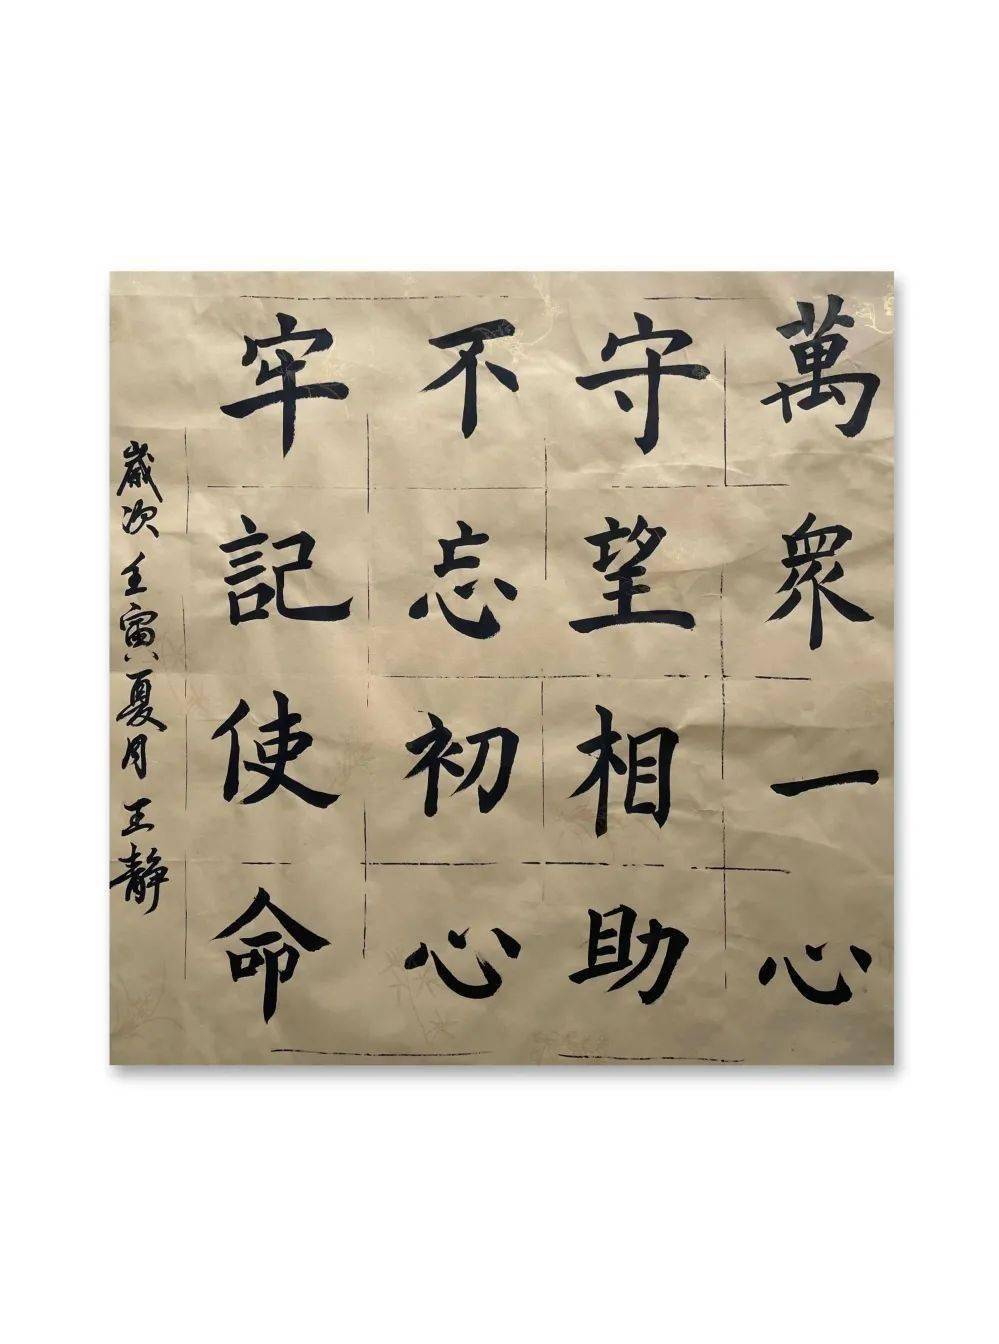 萬衆一心
守望相助
不忘初心
牢記使命
歲次壬寅夏月王靜